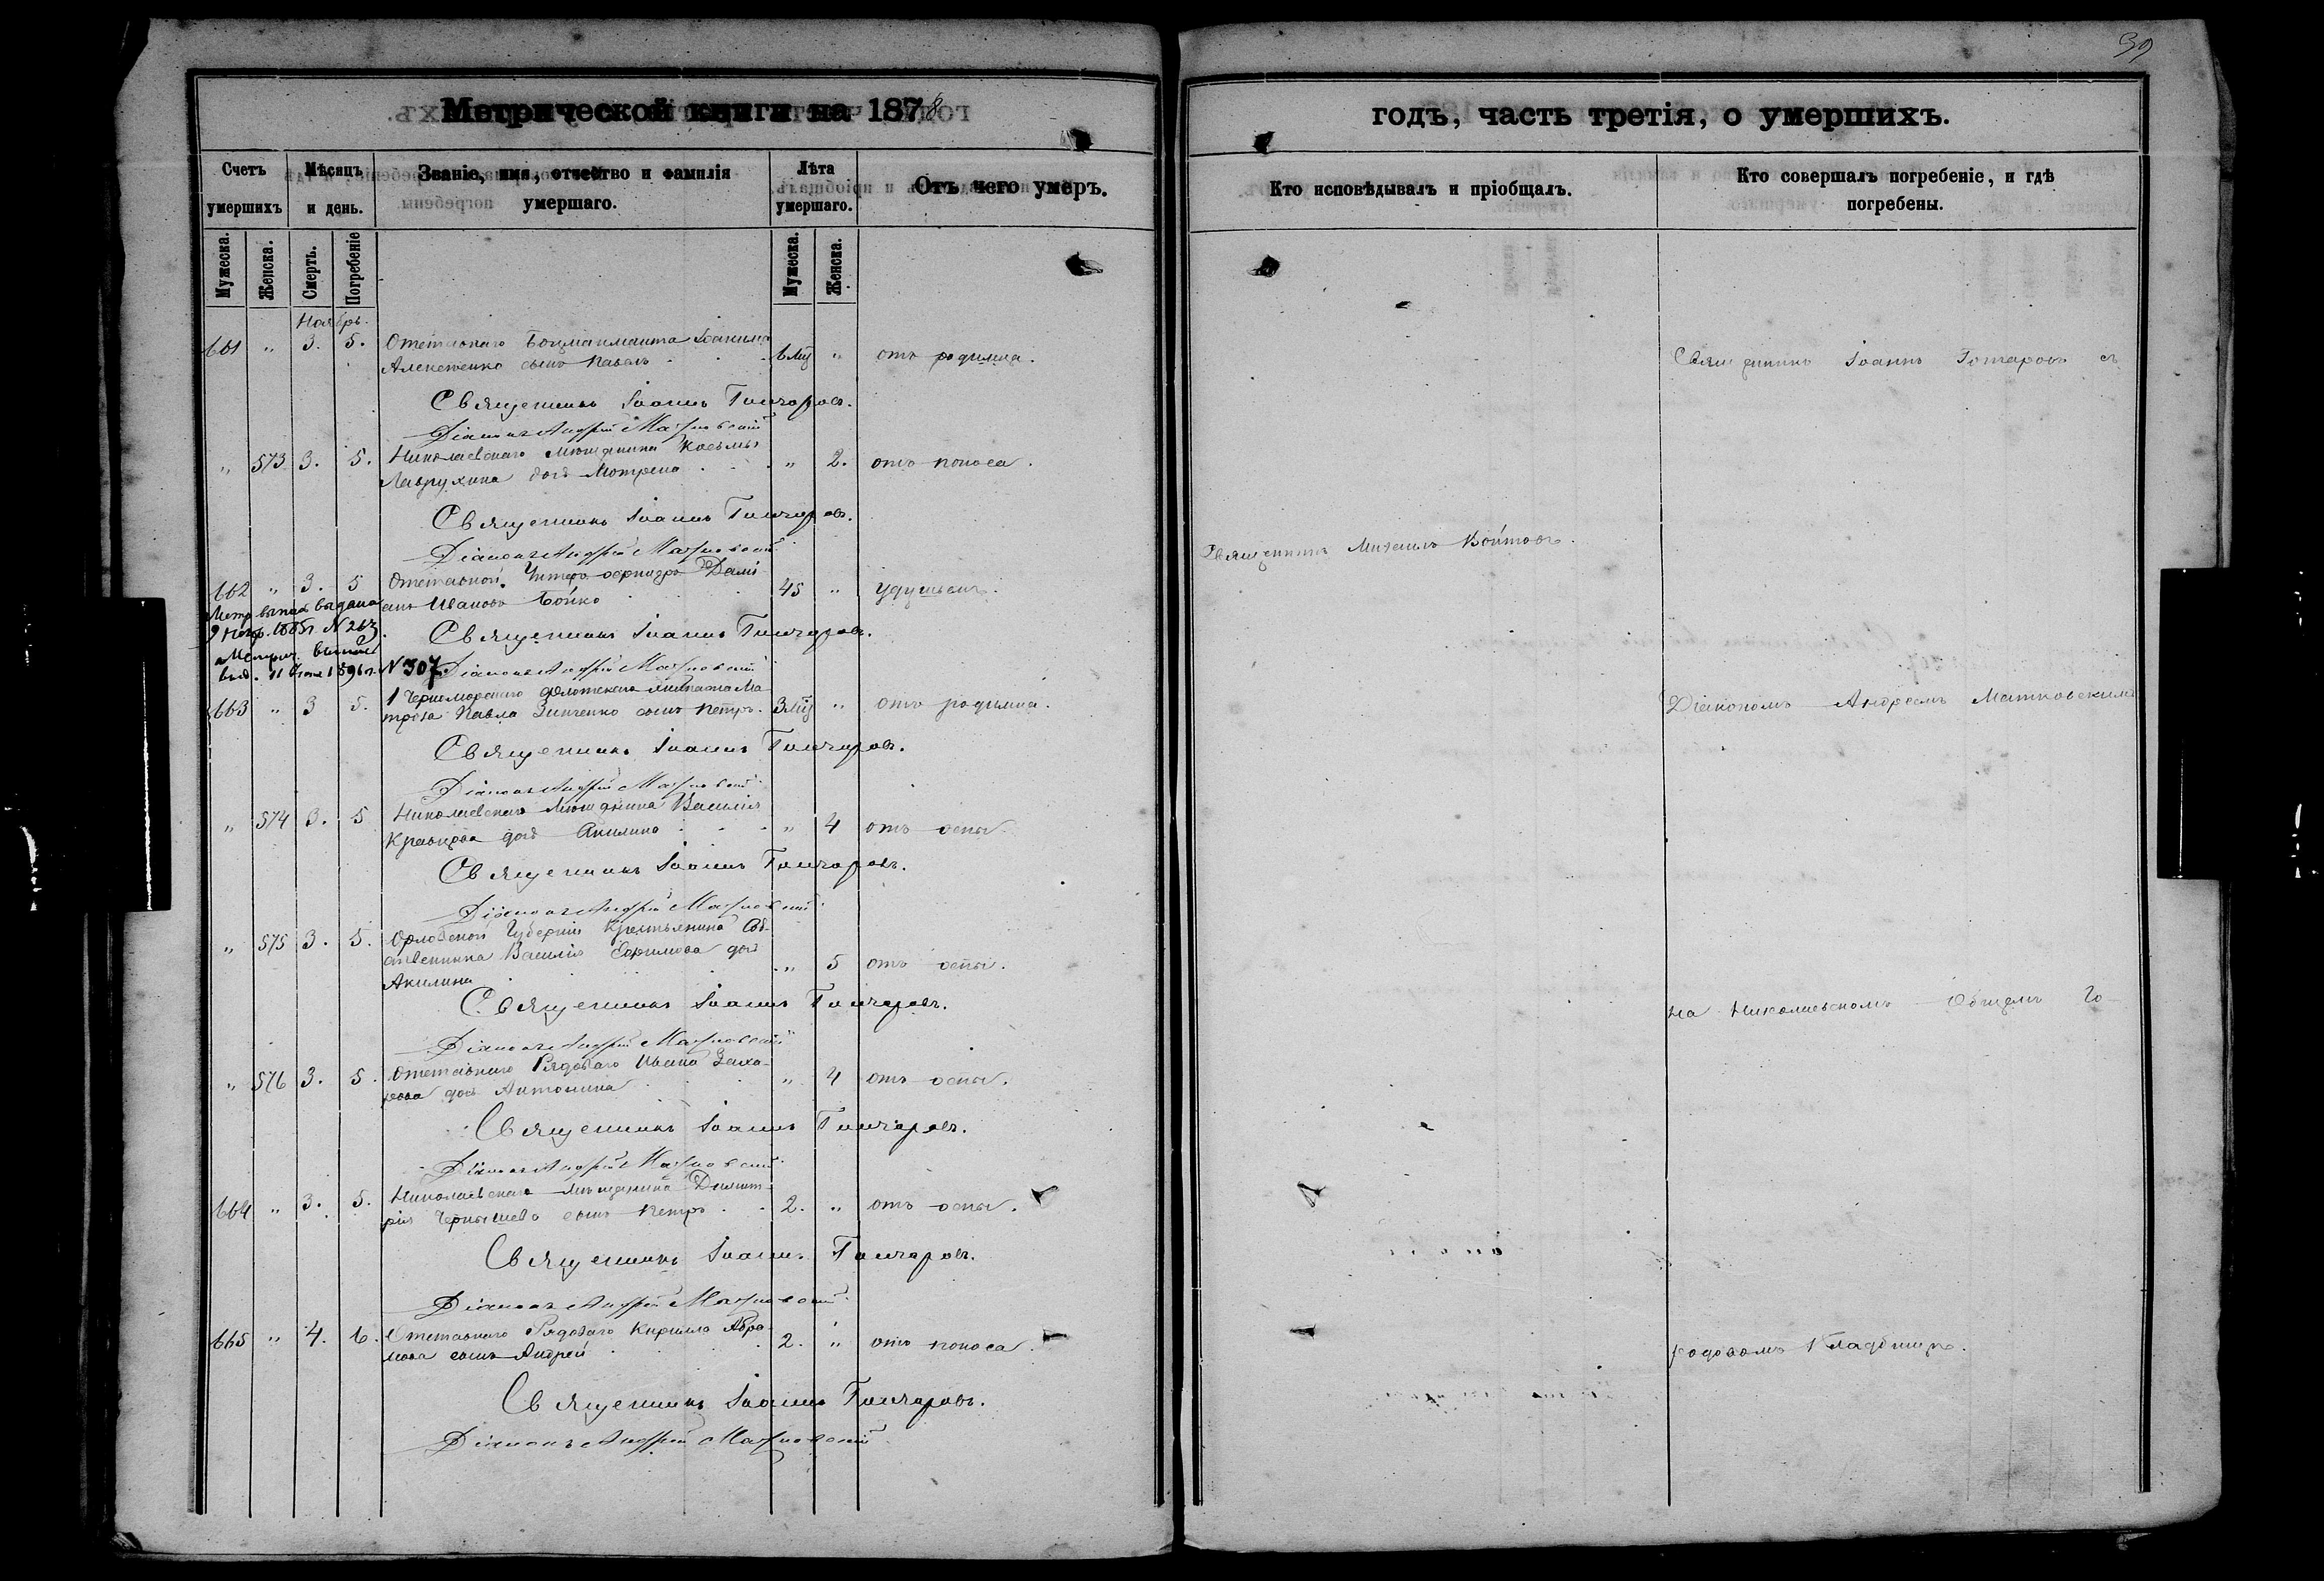 39
Метрической книги на 1878
годъ, часть третія, о умершихъ.
Счетъ умершихъ
Мѣсяцъ и день.
Званіе, имя, отчество и фамилія умершаго.
Лѣта умершаго.
Отъ чего умеръ.
Кто исповѣдывалъ и пріобщалъ.
Кто совершалъ погребеніе, и гдѣ погребены.
Мужеска.
Женска.
Смерть.
Погребеніе
Мужеска.
Женска.
Ноябрь.
661 " 3. 5. Отставнаго Боцманмаита
сынъ Павелъ 6 мц " отъ родимца.
Священникъ Іоаннъ Гончаровъ.
Діаконъ Андрей Матковскій
" 573 3. 5. Николаевскаго мѣщанина Косьмы
Лаврухина дочь Мотрена " 2. отъ поноса.
Священникъ Іоаннъ Гончаровъ.
Діаконъ Андрей Матковскій
662 " 3. 5 Отставной Унтеръ-офицеръ Дамі-
анъ Ивановъ Бойко 45 " удушьемъ.
Метр. выпись выдана
1885 г. N 263.
Священникъ Іоаннъ Гончаровъ.
выд. 11 1896 г. N 307.
Діаконъ Андрей Матковскій
663 " 3 5. 1 Черноморскаго флотскаго экипажа Ма-
троса Павла Зинченко сынъ Петръ. 3 мц " отъ родимца.
Священникъ Іоаннъ Гончаровъ.
Діаконъ Андрей Матковскій
" 574 3. 5 Николаевскаго мѣщанина Василія
Кравцова дочь Акилина " 4 отъ оспы.
Священникъ Іоаннъ Гончаровъ.
Діаконъ Андрей Матковскій
" 575 3. 5. Орловской Губерніи Крестьянина Соб-
ственника Василія Ефимова дочь
Акилина " 5 отъ оспы.
Священникъ Іоаннъ Гончаровъ.
Діаконъ Андрей Матковскій
" 576 3. 5. Отставнаго Рядоваго Ивана Заха-
рова дочь Антонина " 4 отъ оспы.
Священникъ Іоаннъ Гончаровъ.
Діаконъ Андрей Матковскій
664 " 3. 5. Николаевскаго мѣщанина Димит-
рія Чернышева сынъ Петръ 2. " отъ оспы.
Священникъ Іоаннъ Гончаровъ.
Діаконъ Андрей Матковскій
665 " 4. 6. Отставнаго Рядоваго Кирилла Абра-
мова сынъ Андрей 2. " отъ поноса.
Священникъ Іоаннъ Гончаровъ.
Діаконъ Андрей Матковскій
Священникъ Михаилъ Войтовъ.
Священникъ Іоаннъ Гончаровъ съ
Діакономъ Андреемъ Матковскимъ
на Николаевскомъ Общемъ Го-
родовомъ Кладбищѣ.